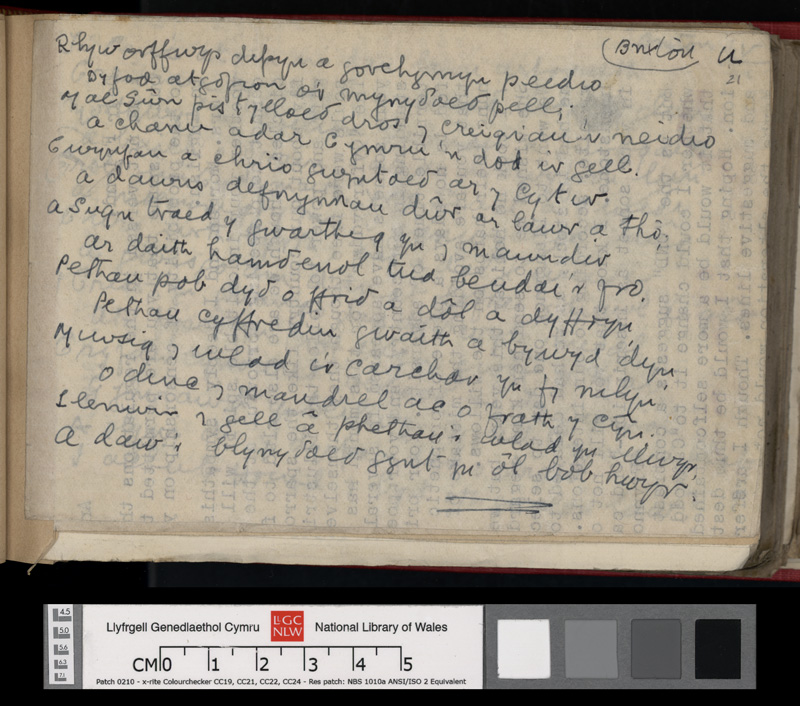 (Brixton 11
21
Rhyw orffwys a gorchymyn peidio
Dyfod atgofion o'r mynyðoeð pell;
Mae Sŵn pistylloeð dros y creigiau'n neidio
a chanu adar Cymru'n dod i'r gell.
a chrio gwyntoeð ar y Cytir
a dawns defnynnau dŵr ar lawr a tho;
a Sugn traed y gwartheg yn y mawndir
ar daith hamðenol tua beudai'r fro.
Pethau pob dyð o ffrið a dôl a dyffryn
Pethau cyffredin gwaith a bywyd dyn
Miwsig y wlad i'r carchar yn fy nilyn
o dinc y mandrel ac o frath y cŷn.
Llenwir y gell â phethau'r wlad yn llwyr,
A daw'r blynyðoeð gynt yn ôl bob hwyr.
Llyfrgell Genedlaethol Cymru LlGC NLW National Library of Wales
CM 0 1 2 3 4 5
Patch 0210 - x-rite Colourchecker CC19, CC21, CC22, CC24 - Res patch: NBS 1010a ANSI/ISO 2 Equivalent
4.5
5.0
5.6
6.3
7.1